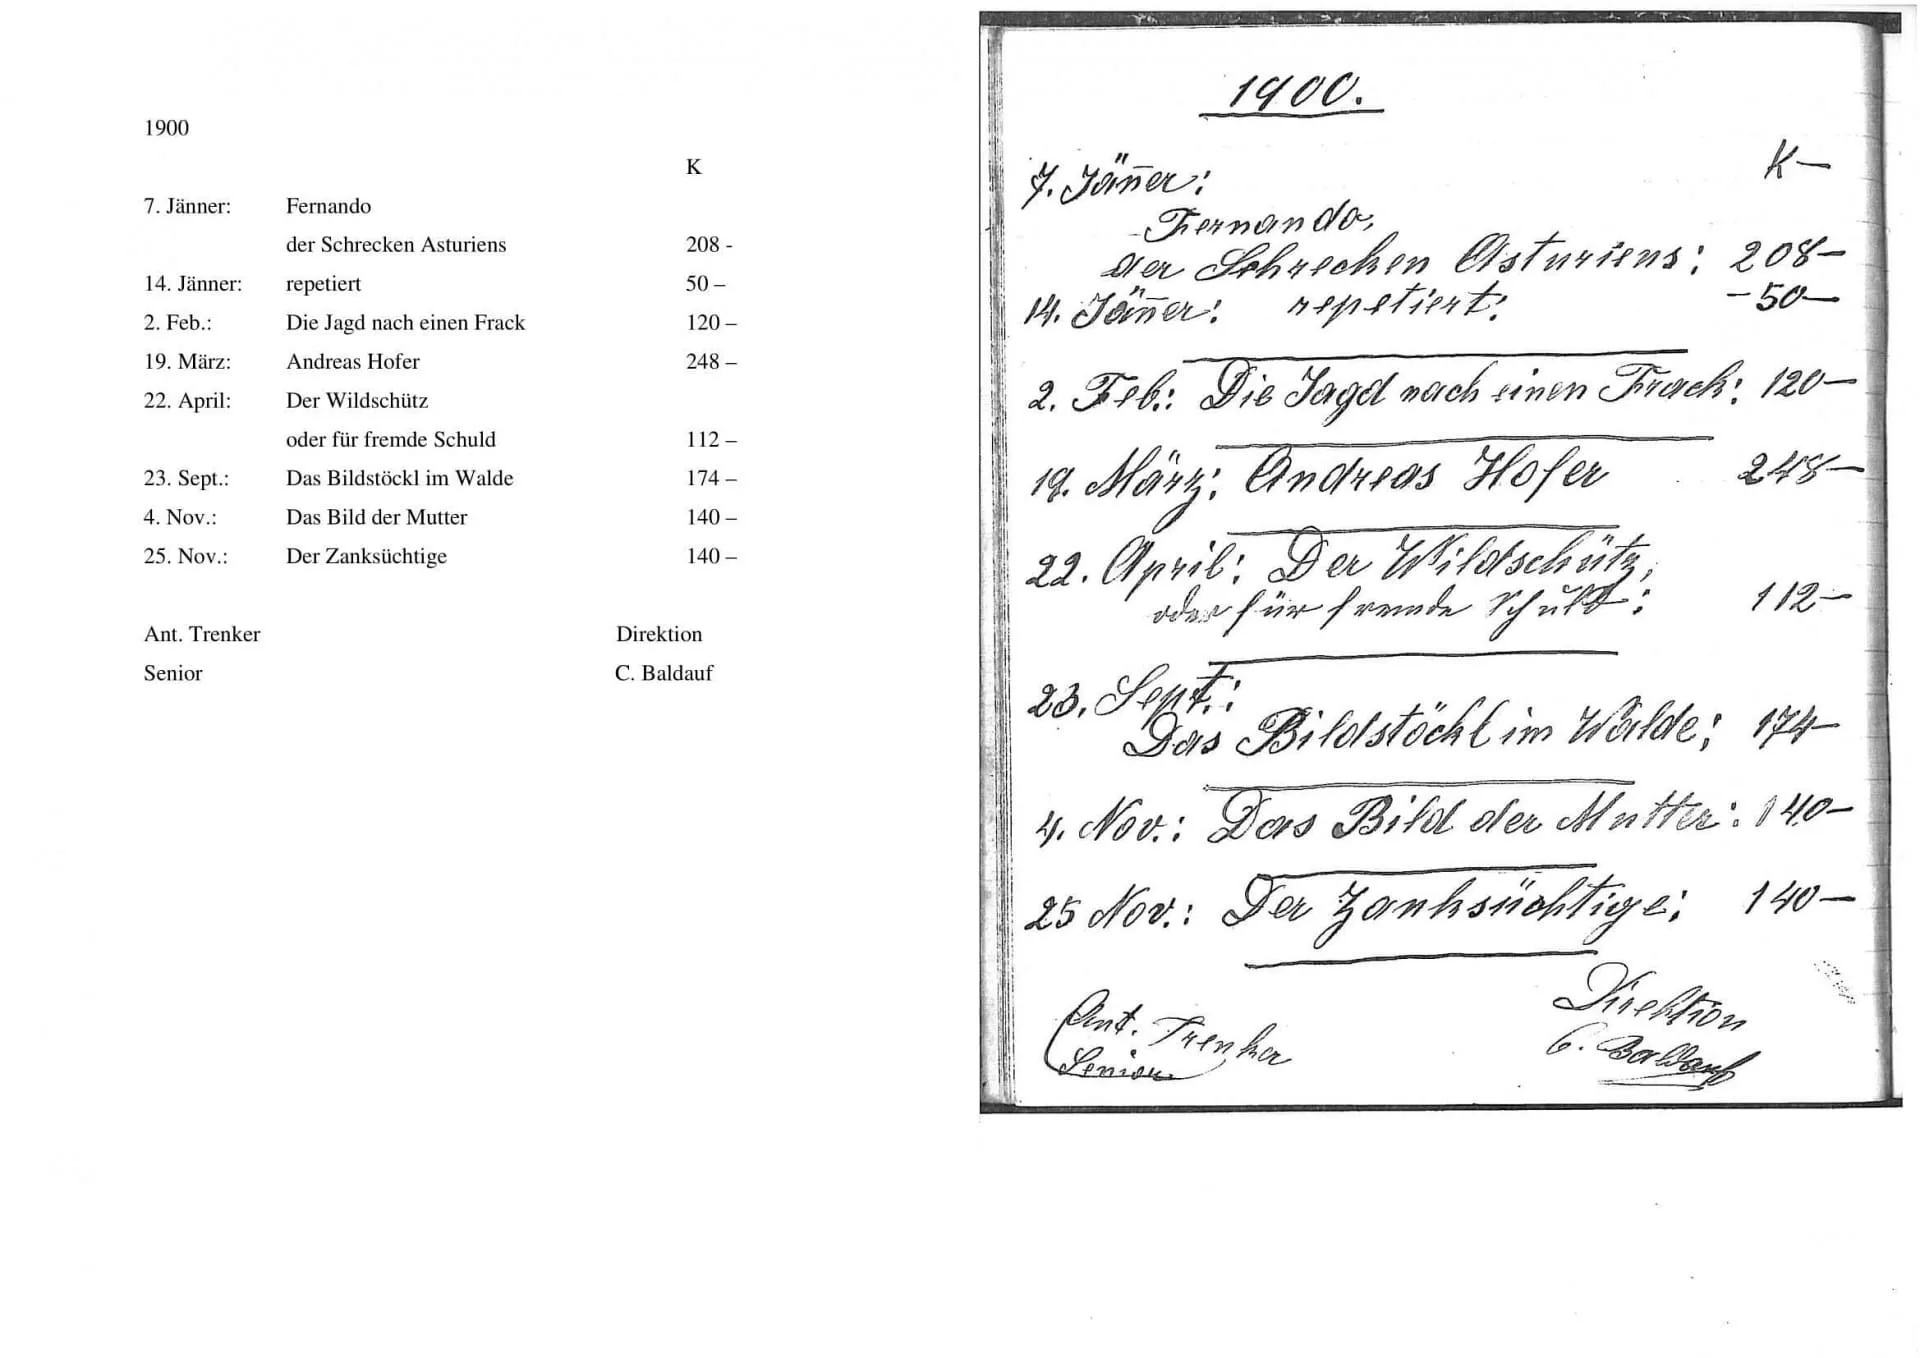 1900
K
7. Jänner: Fernando
der Schrecken Asturiens 208 -
14. Jänner: repetiert 50 –
2. Feb.: Die Jagd nach einen Frack 120 –
19. März: Andreas Hofer 248 –
22. April: Der Wildschütz
oder für fremde Schuld 112 –
23. Sept.: Das Bildstöckl im Walde 174 –
4. Nov.: Das Bild der Mutter 140 –
25. Nov.: Der Zanksüchtige 140 –
Ant. Trenker Direktion
Senior C. Baldauf
1900.
K—
7. Jän̄er:
Fernando,
der Schrecken Asturiens: 208—
14. Jän̄er: repetiert: —50—
2. Feb.: Die Jagd nach einen Frack: 120—
19. März: Andreas Hofer 248—
22. April: Der Wildschütz,
oder für fremde Schuld: 112—
23. Sept.:
Das Bildstöckl im Walde: 174—
4. Nov.: Das Bild der Mutter: 140—
25 Nov.: Der Zanksüchtige: 140—
Ant. Trenker
Senior
Direktion
C. Baldauf